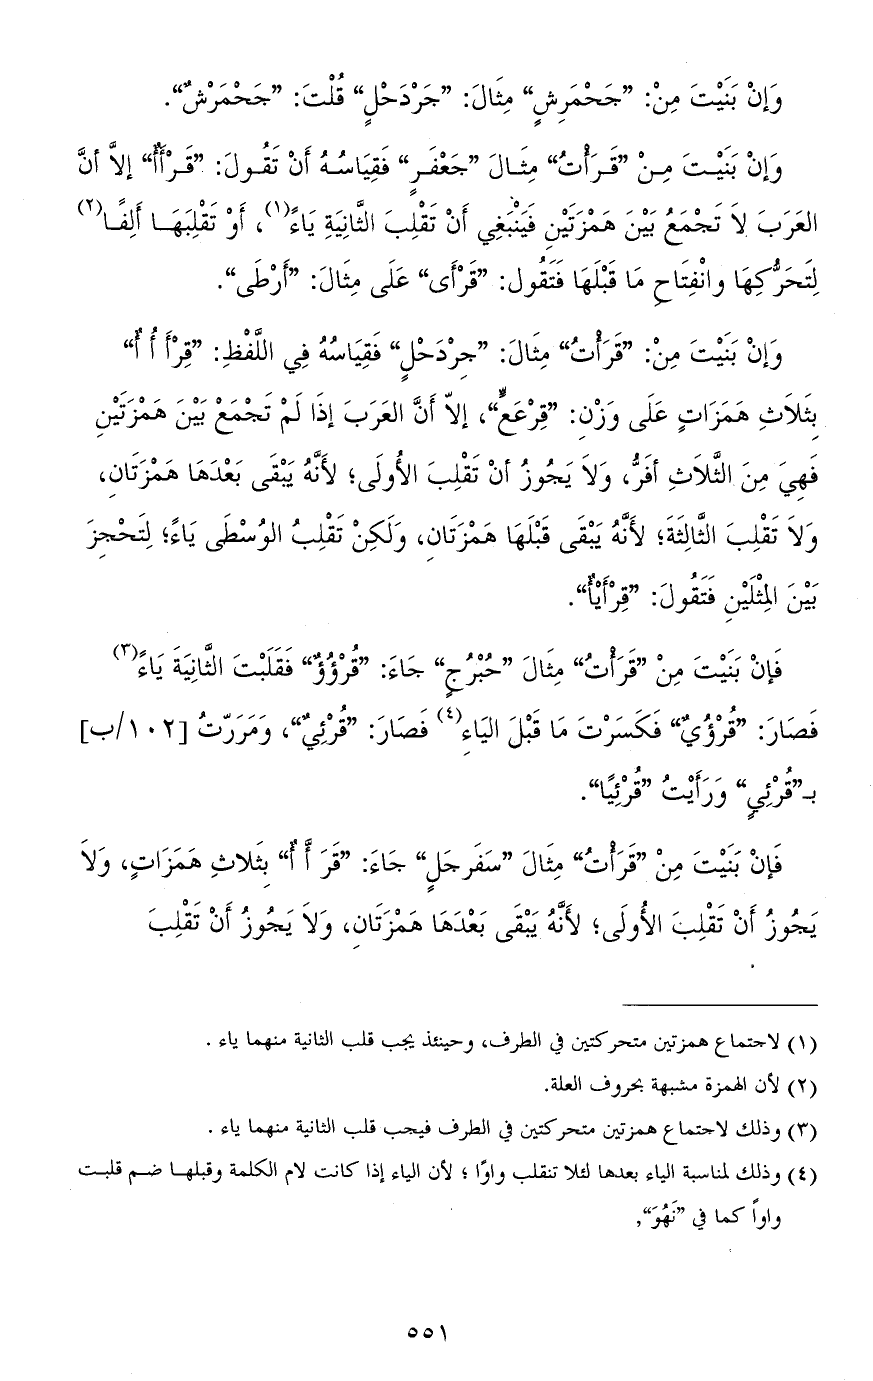 وَإِنْ بَنَيْتَ مِنْ: "جَحْمَرِشٍ" مِثَالَ: "جَرْدَحْلٍ" قُلْتَ: "جَحْمَرْشٌ".
وَإِنْ بَنَيْتَ مِنْ "قَرَأْتُ" مِثَالَ "جَعْفَرٍ" فَقِيَاسُهُ أَنْ تَقُولَ: "قَرْأَأٌ" إِلاَّ أَنَّ
العَرَبَ لاَ تَجْمَعُ بَيْنَ هَمْزَتَيْنِ فَيَنْبَغِي أَنْ تَقْلِبَ الثَّانِيَةِ يَاءً(١)، أَوْ تَقْلِبَهَا أَلِفًا(٢)
لِتَحَرُّكِهَا وانْفِتَاحِ مَا قَبْلَهَا فَتَقُول: "قَرْأَى" عَلَى مِثَالَ: "أَرْطَى".
وَإِنْ بَنَيْتَ مِنْ: "قَرَأْتُ" مِثَالَ: "جِرْدَحْلٍ" فَقِيَاسُهُ فِي اللَّفْظِ: "قِرْأَ أْ أٌ"
بِثَلاَثِ هَمَزَاتٍ عَلَى وَزْنِ: "قِرْعَعٌّ"، إِلاّ أَنَّ العَرَبَ إِذَا لَمْ تَجْمَعْ بَيْنَ هَمْزَتَيْنِ
فَهِيَ مِنَ الثَّلاَثِ أَفَرُّ، وَلاَ يَجُوزُ أَنْ تَقْلِبَ الأُولَى؛ لأَنَّهُ يَبْقَى بَعْدَهَا هَمْزَتَانِ،
وَلاَ تَقْلِبَ الثَّالِثَةَ؛ لأَنَّهُ يَبْقَى قَبْلَهَا هَمْزَتَانِ، وَلَكِنْ تَقْلِبُ الوُسْطَى يَاءً؛ لِتَحْجِزَ
بَيْنَ المِثْلَيْنِ فَتَقُولَ: "قِرْأَيْأٌ".
فَإِنْ بَنَيْتَ مِنْ "قَرَأْتُ" مِثَالَ "حُبْرُجٍ" جَاءَ: "قُرْؤُؤٌ" فَقَلَبْتَ الثَّانِيَةَ يَاءً(٣)
فَصَارَ: "قُرْؤُيٌ" فَكَسَرْتَ مَا قَبْلَ اليَاءِ(٤) فَصَارَ: "قُرْئِيٌ"، وَمَرَرْتُ [١٠٢/ب]
بـ"قُرْئِيٍ" وَرَأَيْتُ "قُرْئِيًا".
فَإِنْ بَنَيْتَ مِنْ "قَرَأْتُ" مِثَالَ "سَفَرجَلٍ" جَاءَ: "قَرَ أَّ أٌ" بِثَلاثِ هَمَزَاتٍ، وَلاَ
يَجُوزُ أَنْ تَقْلِبَ الأُولَى؛ لأَنَّهُ يَبْقَى بَعْدَهَا هَمْزَتَانِ، وَلاَ يَجُوزُ أَنْ تَقْلِبَ
(١) لاجتماع همزتين متحركتين في الطرف، وحينئذ يجب قلب الثانية منهما ياء .
(٢) لأن الهمزة مشبهة بحروف العلة.
(٣) وذلك لاجتماع همزتين متحركتين في الطرف فيجب قلب الثانية منهما ياء .
(٤) وذلك لمناسبة الياء بعدها لئلا تنقلب واوًا ؛ لأن الياء إذا كانت لام الكلمة وقبلها ضم قلبت
واواً كما في "نَهُوَ",
٥٥١